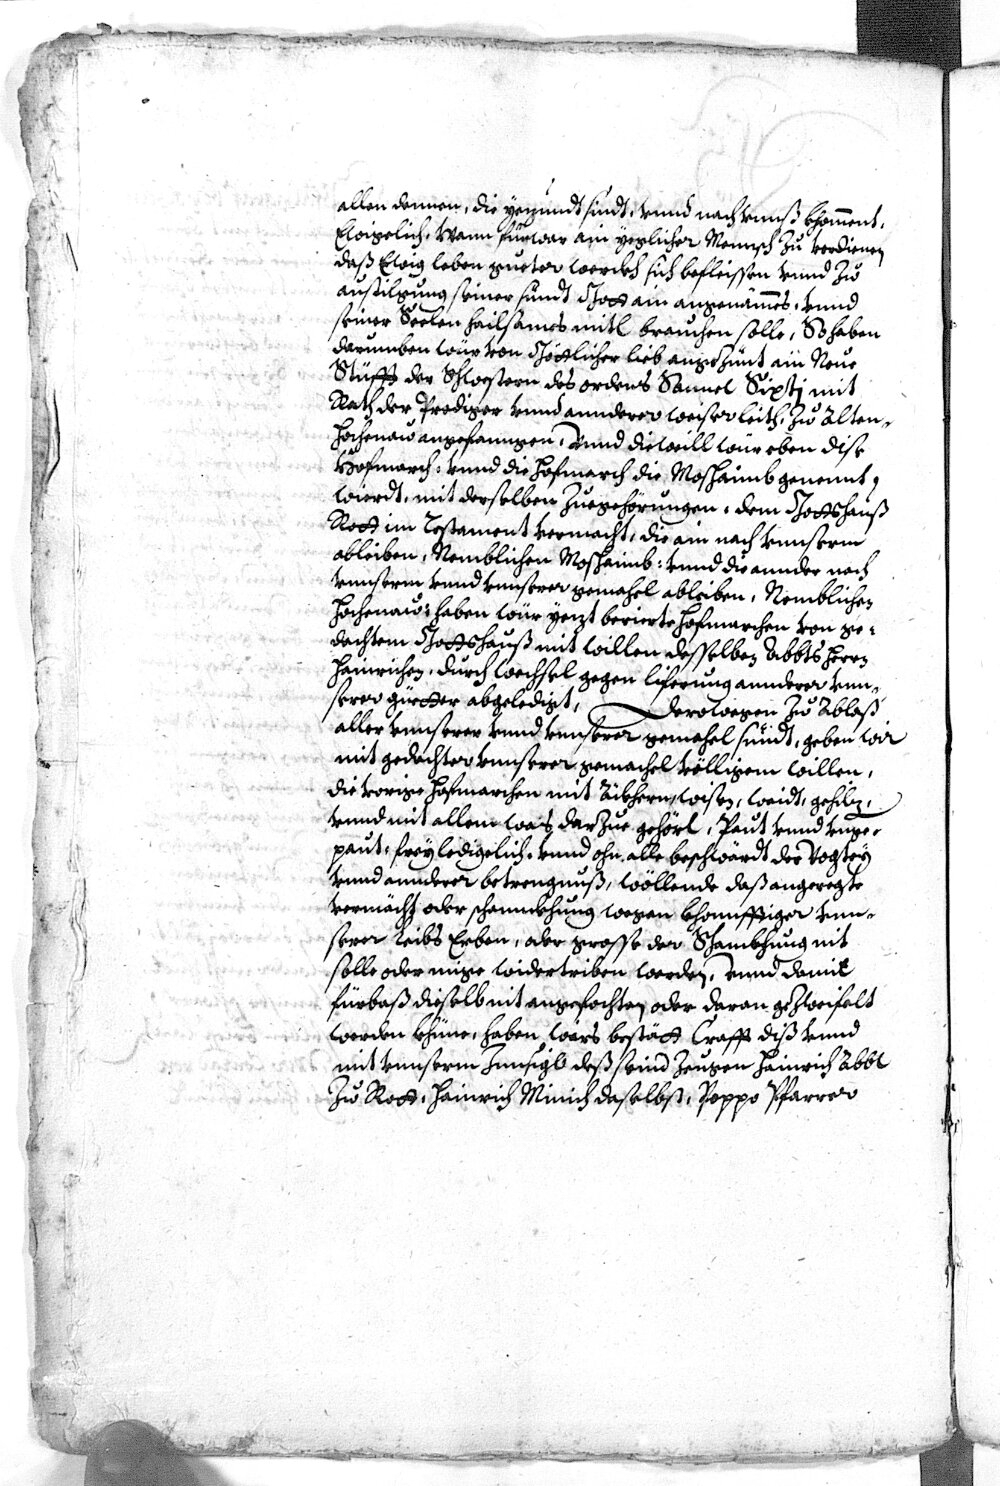 allen denen, die yezundt sindt, vnnd nach vnnß khomment,
Ewigelich. Wann fürwar ain yeglicher Mensch zu verdienen
daß Ewig leben gueter werckh sich befleissen vnnd zu
austilgung seiner sündt Gott ain angenämes, vnnd
seiner Seelen hailsames mitl brauchen solle, So haben
darumben wür von Göttlicher lieb angezünt ain Neue
Stüfft der Schwestern des ordens Sannct Sixtj mit
Rath der Prediger vnnd annderer weiser leith, zu Alten-
hochenaw angefanngen, Vnnd dieweill wür eben dise
Hofmarch: vnnd die hofmarch die Moshaimb genennt,
wierdt, mit derselben Zuegehörungen, dem Gottshauß
Rott im Testament vermacht, die ain nach vnnserm
ableiben, Nemblichen Moshaimb: vnnd die annder nach
vnnserm vnnd vnnserer gemahel ableiben, Nemblichen
Hochenaw: haben wür yezt berierte hofmarchen von ge-
dachtem Gottshauß mit willen desselben Abbts herrn
Hainrichen, durch wechsel gegen liferung annderer vnn-
serer güetter abgeledigt, Derowegen zu Ablaß
aller vnnserer vnnd vnnserer gemahel sündt, geben wir
mit gedachter vnnserer gemachel völligem willen,
die vorige hofmarchen mit Äckhern, wisen, waidt, gehilz,
vnnd mit allem was darzue gehört, Paut vnnd vnge-
paut, frey ledigelich, vnnd ohn alle beschwärdt der Vogtey
vnnd annderer betrengnuß, wöllende daß angeregte
vermächt oder schannckhung wegen khonfftiger vnn-
serer Leibs Erben, oder grosse der Schanckhung nit
solle oder müge widertriben werden, Vnnd damit
fürbaß dieselb nit angefochten oder daran gezweifelt
werden khüne, haben wirs bestätt Crafft diß vnnd
mit vnnserm Innsigl, deß seind Zeugen Hainrich Abbt
zu Rott, Hainrich Minich daselbs, Poppo Pfarrer